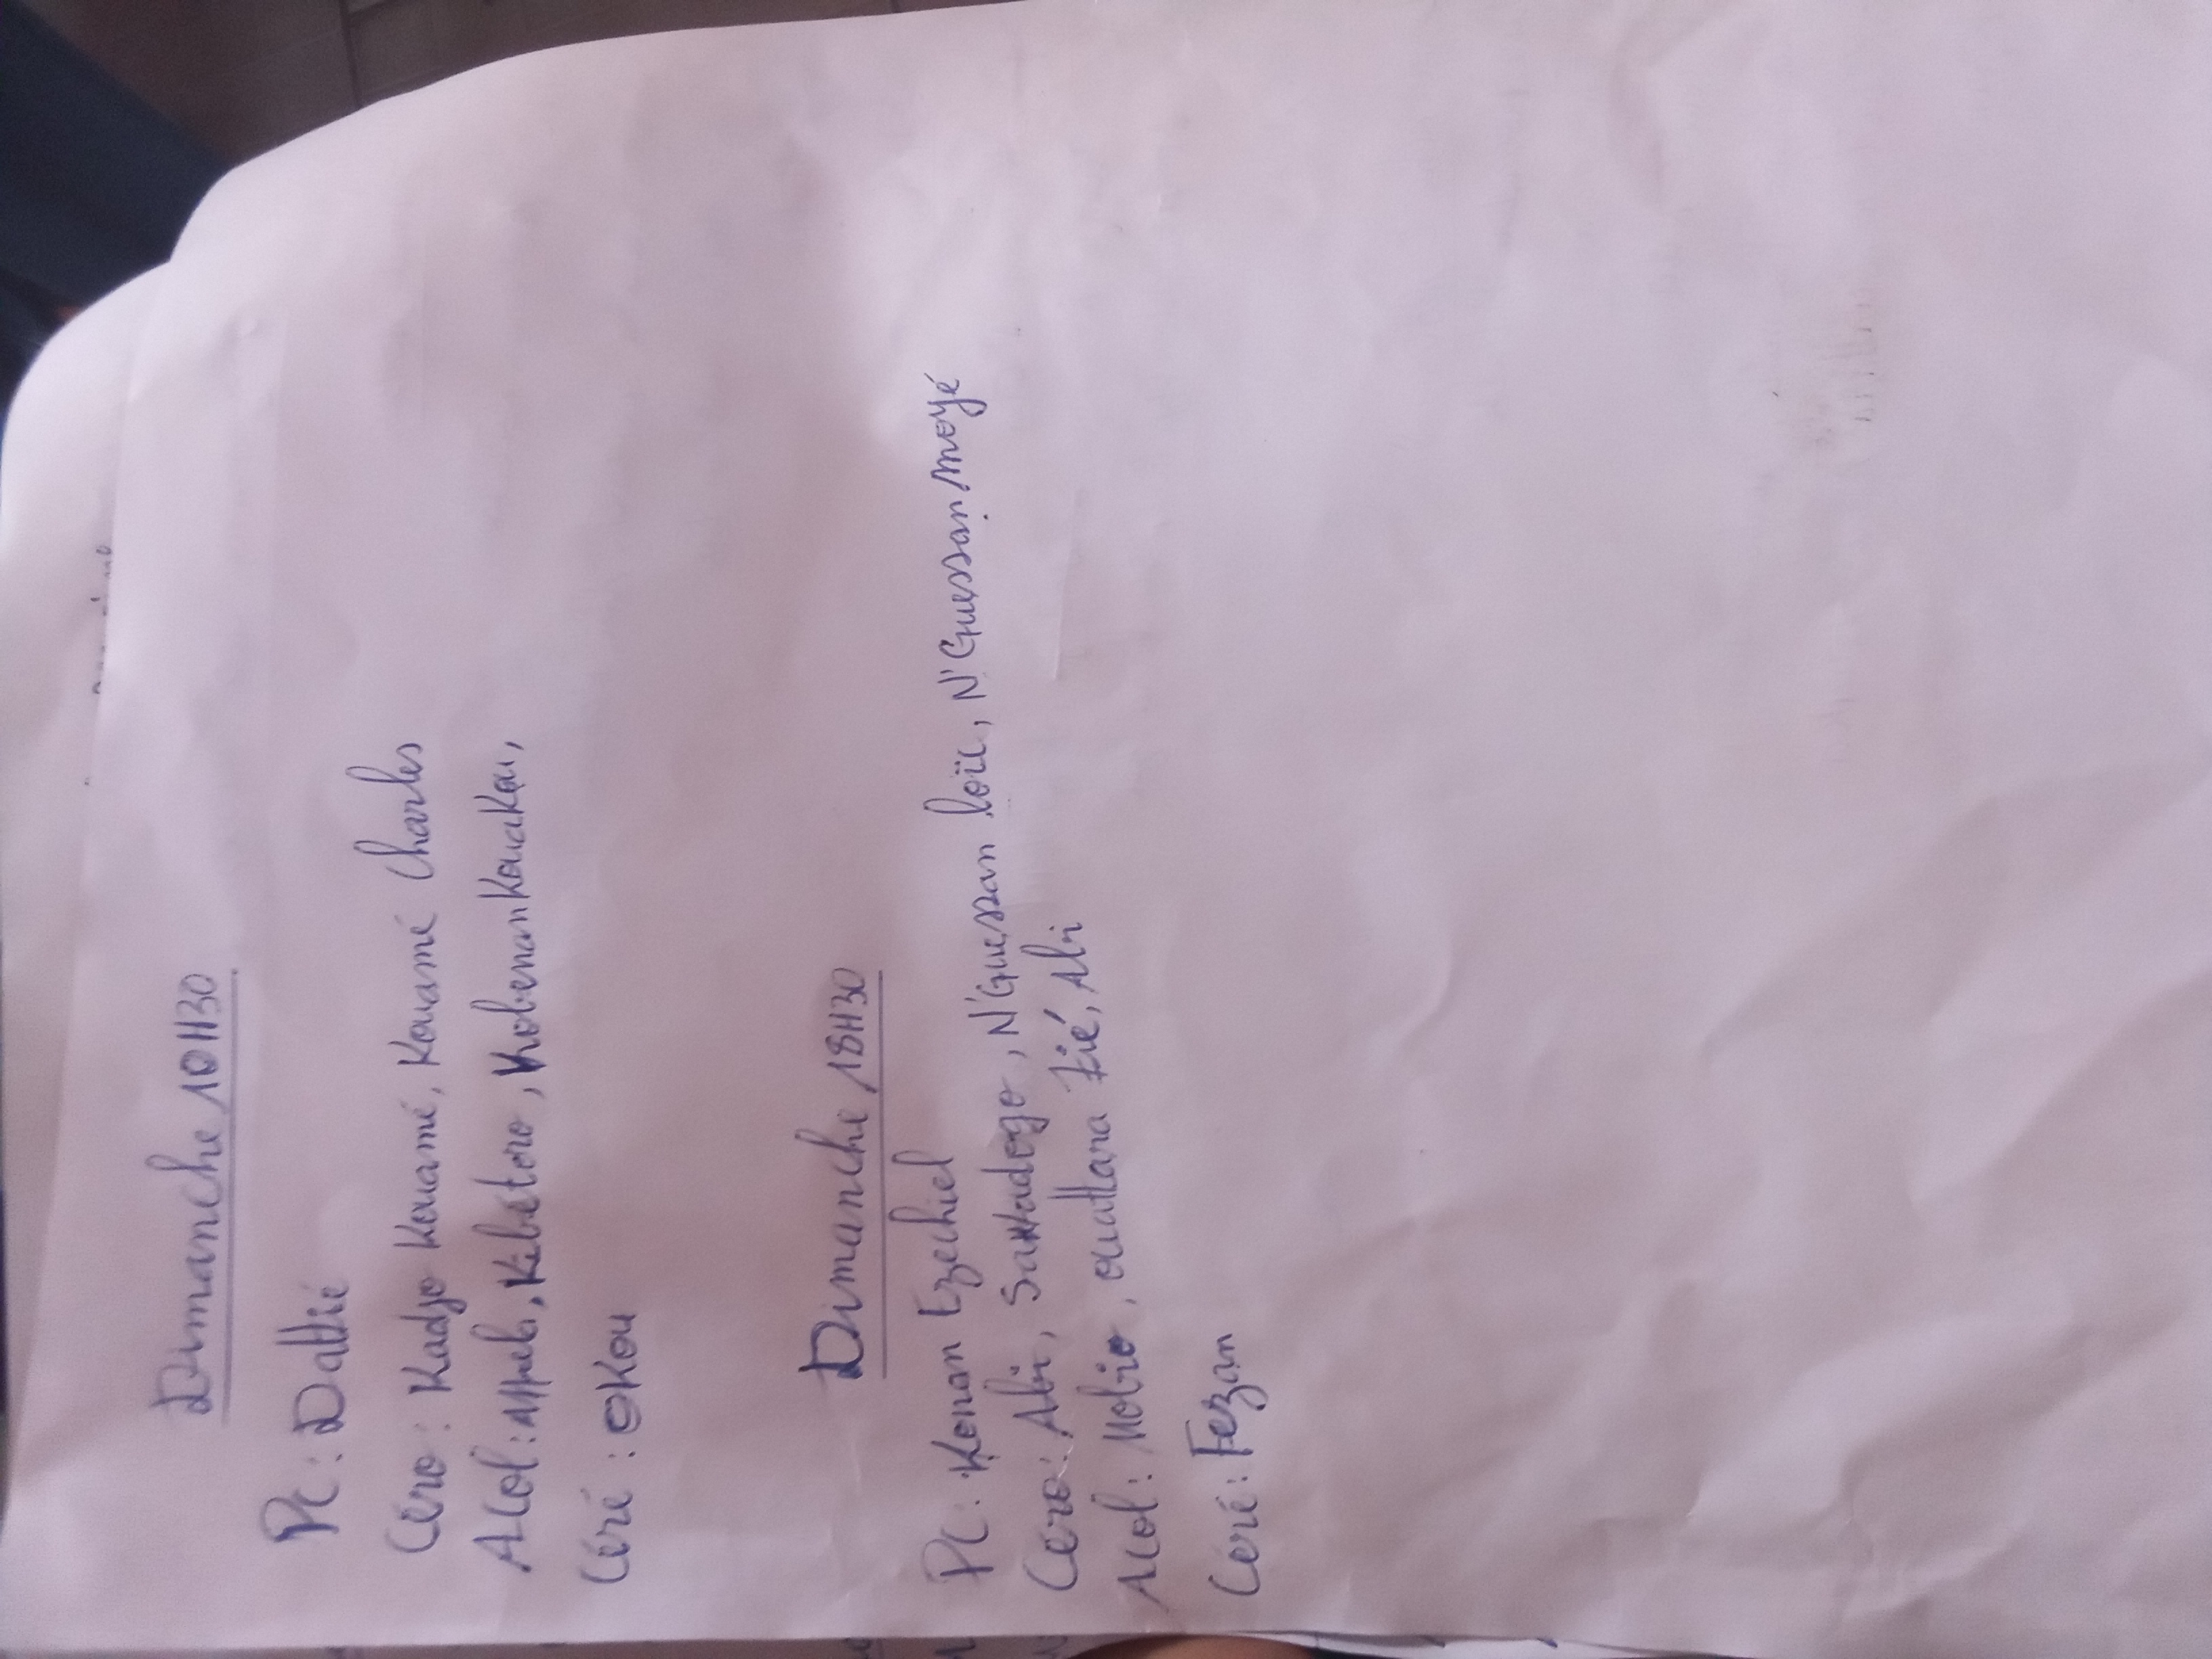 Dimanche 10H30
PC : Dallié
Céro : Kadjo Kouamé, Kouamé Charles
Acol : , , Kobenan Kouakou,
Céré : OKOU
Dimanche 18H30
PC : Konan Ezechiel
Céro : Abi, Sawadogo, N'Guessan loïc, N'Guessan moyé
Acol : Mobio, ouattara Zié, Abi
Céré : Fezan